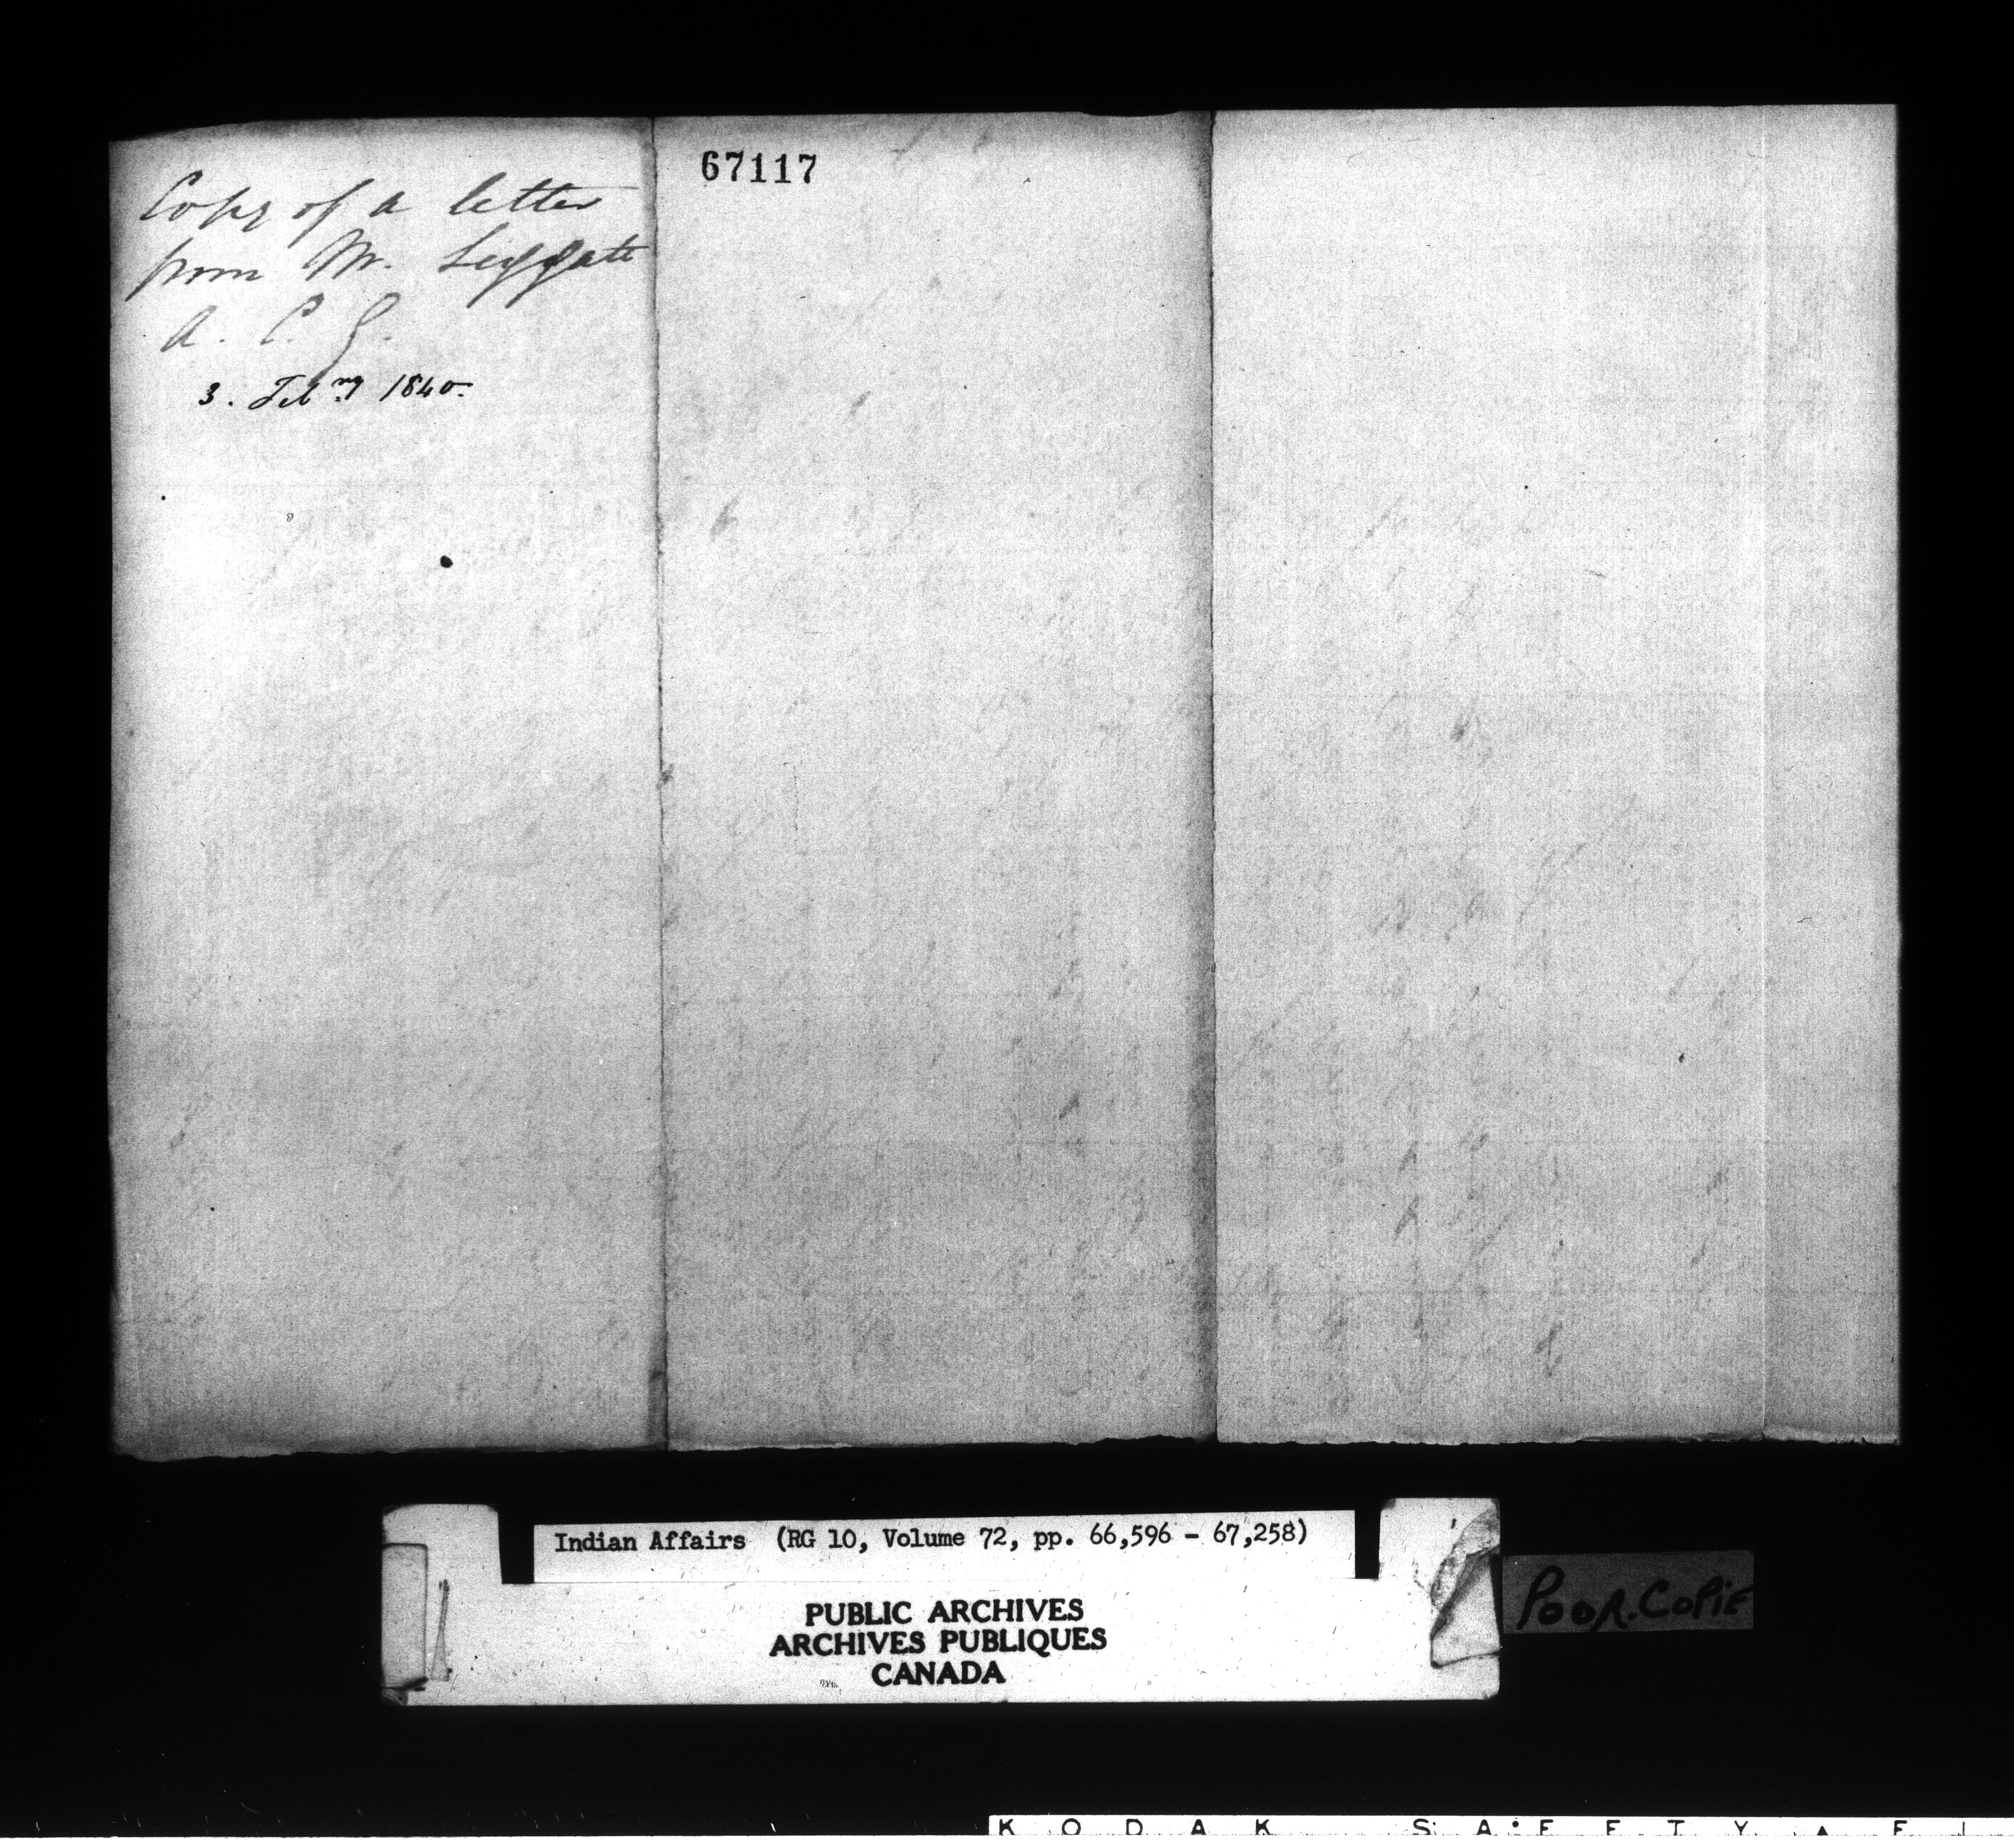 Copy of a letter
from Mr. Leggatt
A. C. G.
3. Feb.ry 1840.
67117
Indian Affairs (RG 10, Volume 72, pp. 66,596 - 67,258)
PUBLIC ARCHIVES
ARCHIVES PUBLIQUES
CANADA
POOR.COPIE
KODAK SAFETY